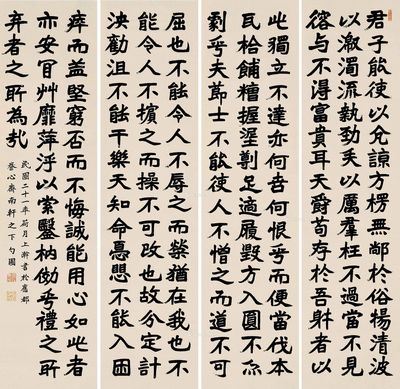 君子能使以允諒方楞無鄰於俗揚清波
以激濁流執勁矢以厲羣枉不過當不見
容與不得富貴耳天爵苟存於吾躰者以
此獨立不達亦何苦何恨乎而便當伐本
瓦枱餔糟握泥剿足適履毀方入圓不亦
劇乎夫節士不能使人不憎之而道不可
屈也不能令人不辱之而榮猶在我也不
能令人不擯之而操不可改也故分定計
決勸沮不能干樂天知命憂懼不能入困
瘁而益堅窮否而不悔誠能用心如此者
亦安肎艸靡萍浮以索鑿枘傚乎禮之所
棄者之所為哉
民國二十一年荷月上澣書於舊都
養心齋南軒之下勺園